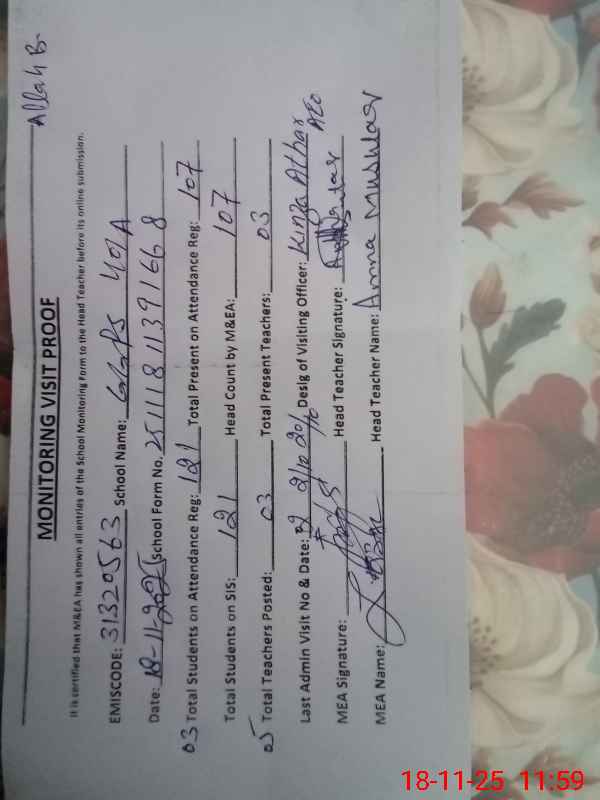 Allah B
MONITORING VISIT PROOF
It is certified that M&EA has shown all entries of the School Monitoring Form to the Head Teacher before its online submission.
EMISCODE: 31320563 School Name: GGPS 40/A
Date: 18-11-2025 School Form No. 25111811391668
03 Total Students on Attendance Reg: 121 Total Present on Attendance Reg: 107
Total Students on SIS: 121 Head Count by M&EA: 107
05 Total Teachers Posted: 03 Total Present Teachers: 03
Last Admin Visit No & Date: Desig of Visiting Officer: Kinza Athar AEO
MEA Signature: Head Teacher Signature:
MEA Name: Head Teacher Name: Amna Mushtaq
18-11-25 11:59